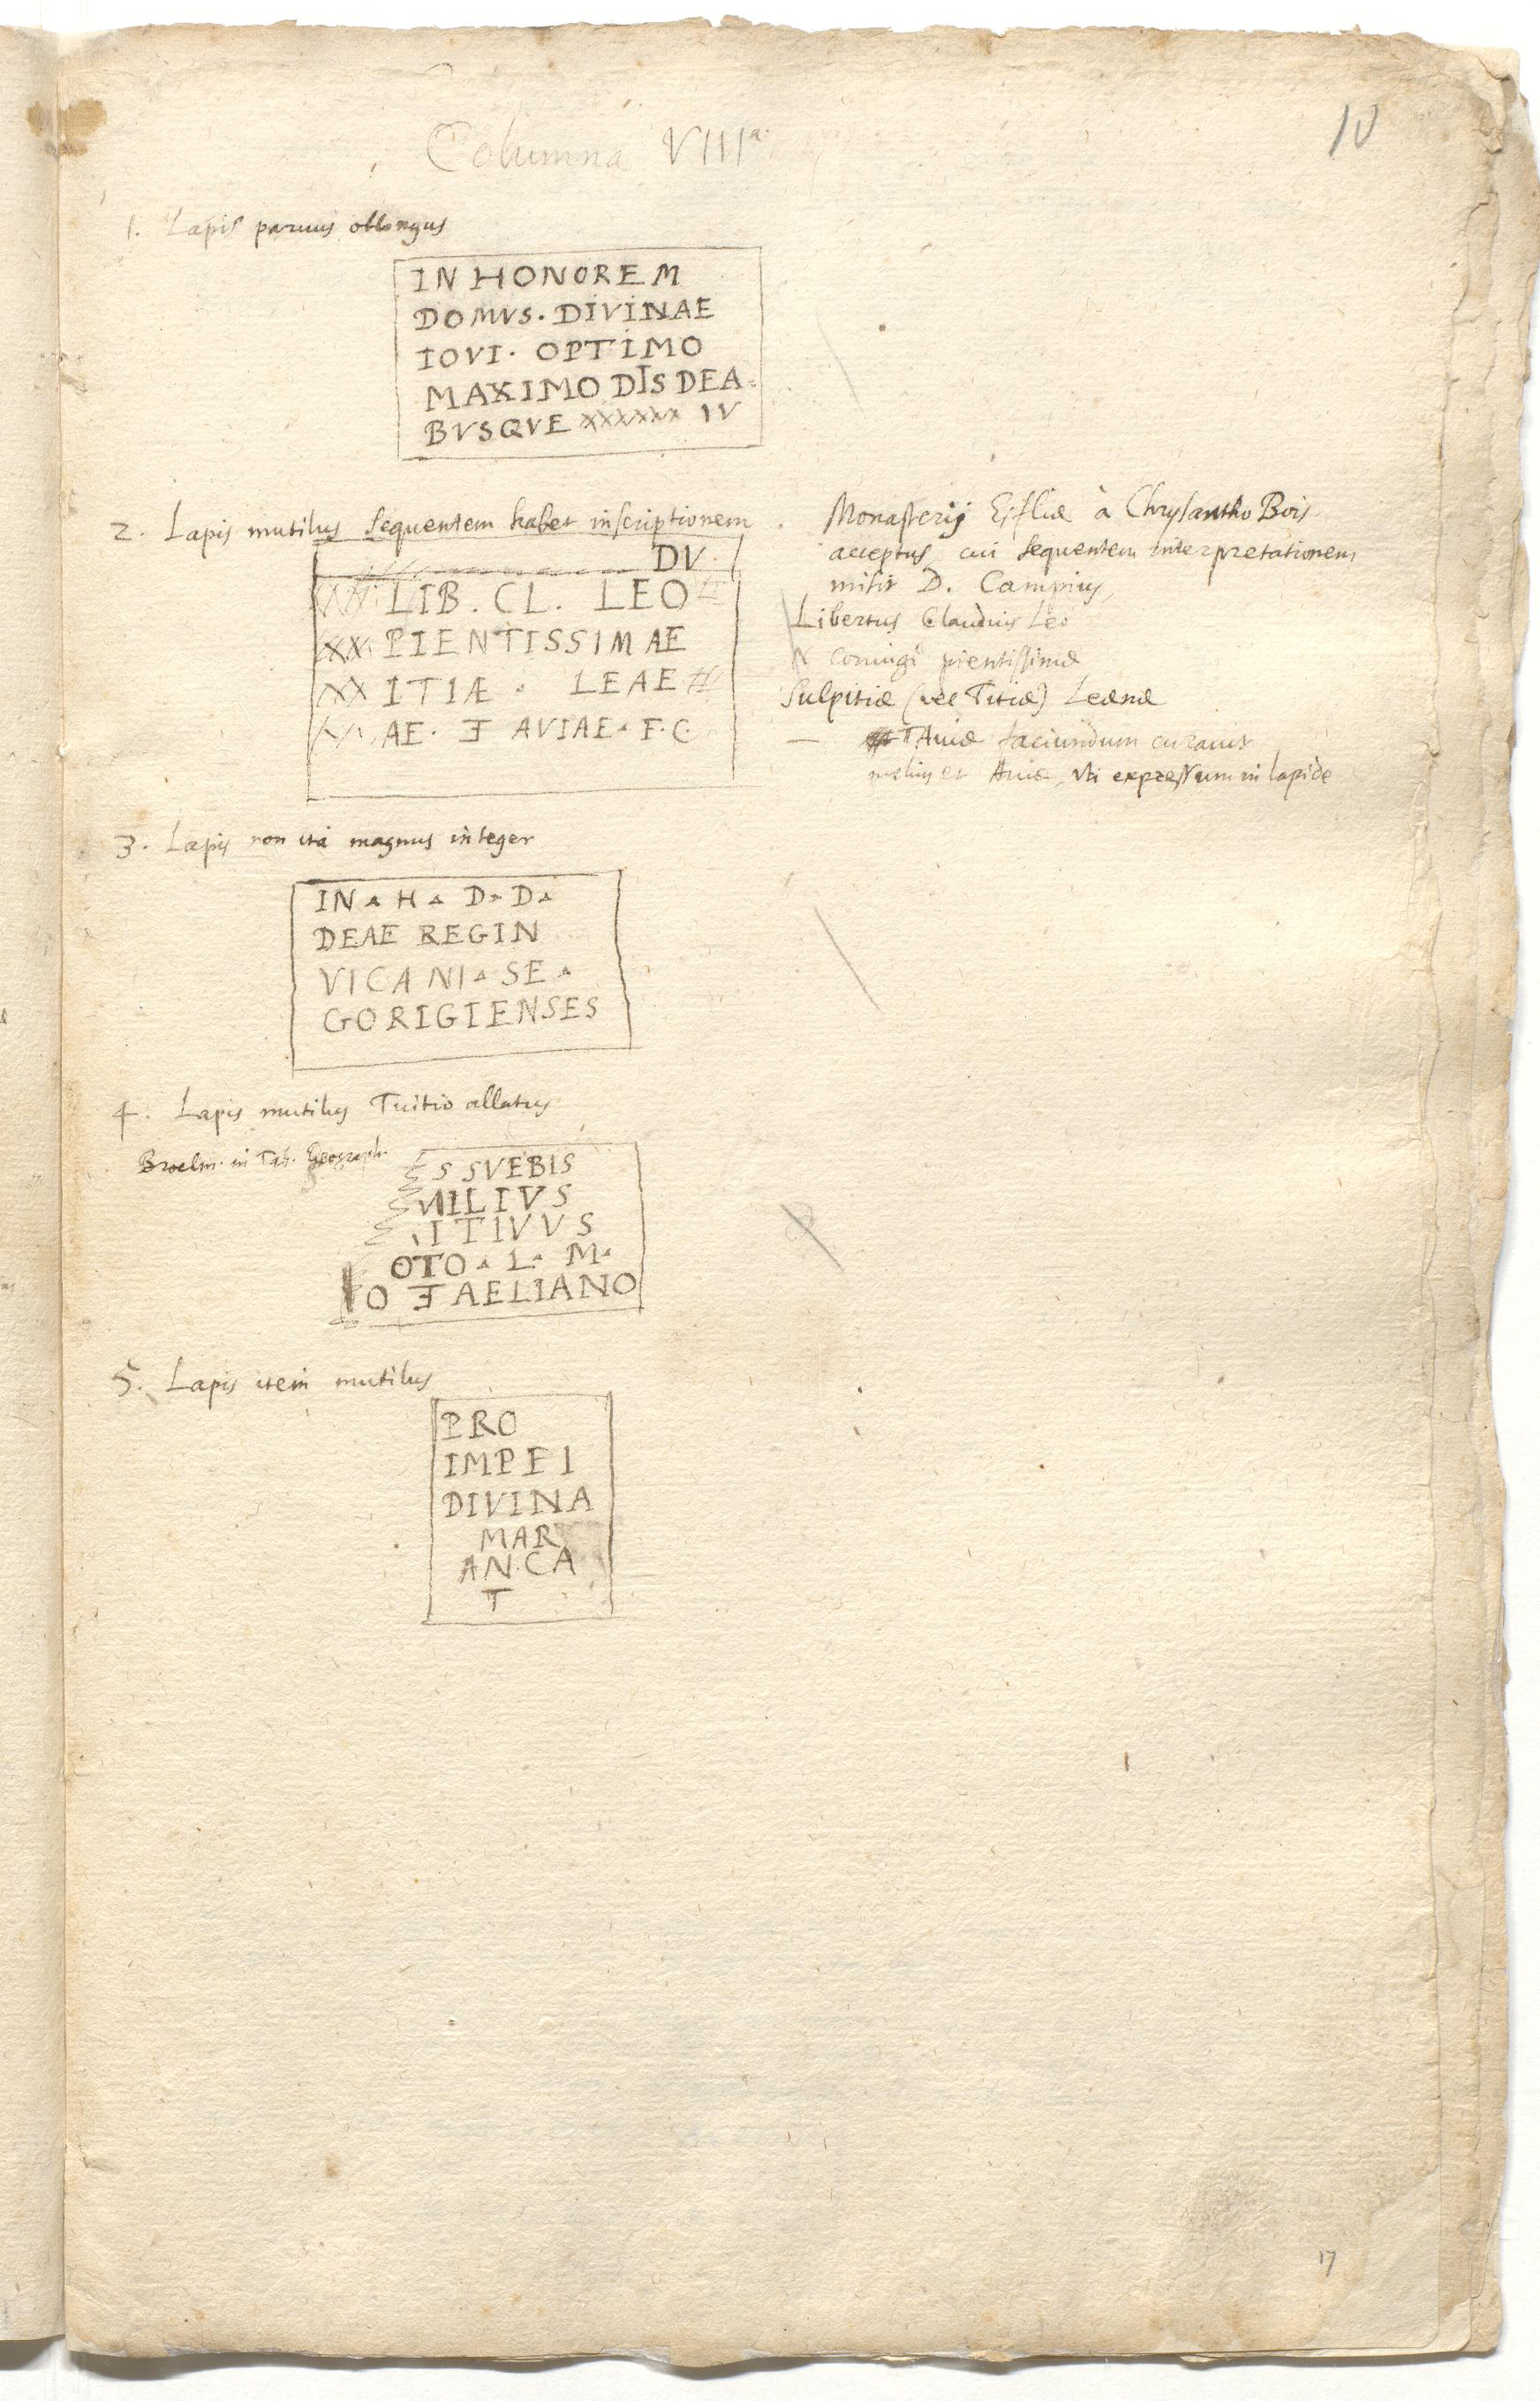 10
Columna VIIIa.
1. Lapis paruus oblongus
IN HONOREM
DOMVS. DIVINAE
IOVI. OPTIMO
MAXIMO DIS DEA=
BVSQVE xxxxxx IV
2. Lapis mutilus sequentem habet inscriptionem.
DV.
LIB. CL. LEO
XX PIENTISSIMAE
XX ITIÆ. LEAE
AE. Ǝ AVIAE. F. C.
Monasterij Eifliæ à Chrysantho Bois
acceptus cui sequentem interpretationem
misit D. Campius
Libertus Claudius Leo
coniugi pientissimæ
Sulpitiæ (vel Titiæ) Leænæ
— TAuiæ faciundum curauit
melius et Auiæ, vti expressum in lapide
3. Lapis non ita magnus integer
IN ▵ H ▵ D ▵ D ▵
DEAE REGIN
VICANI ▵ SE ▵
GORIGIENSES
4. Lapis mutilus Tuitio allatus
Broelm. in Tab. Geograph.
S SVEBIS
MILIVS
ITIVVS
OTO ▵ L ▵ M ▵
O Ǝ AELIANO
5. Lapis item mutilus
PRO
IMPEI
DIVINA
MAR
AN. CA
T
17